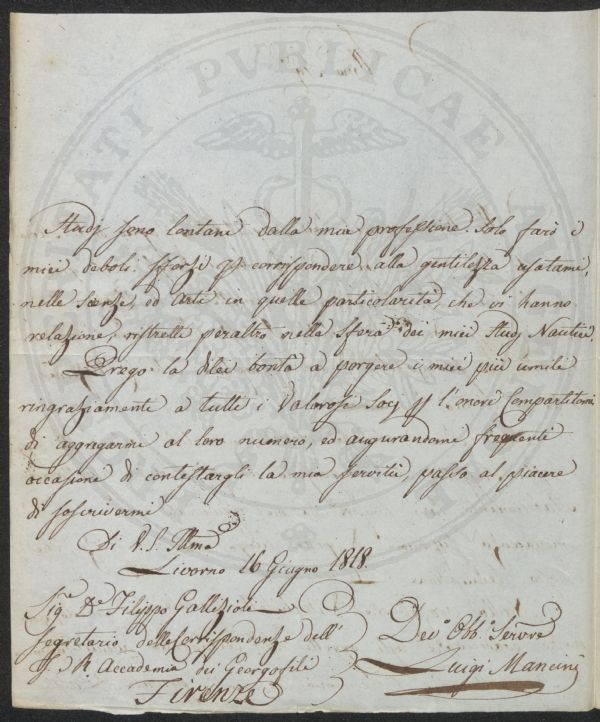 Studj sono lontani dalla mia professione. Solo farò i
miei deboli sforzi p corrispondere alla gentilezza usatami,
nelle Scienze, ed Arti in quelle particolarità, che vi hanno
relazione, ristretti peraltro nella Sfera dei miei Studj Nautici.
Prego la dilei bontà a porgere i miei più umili
ringraziamenti a tutti i Valorosi Socj p l'onore Compartitomi
di aggregarmi al loro numero, ed augurandomi frequenti
occasioni di contestargli la mia servitù, passo al piacere
di soscrivermi
Di V.S. Illma
Livorno 16 Giugno 1818.
Sig. Dr Filippo Gallizioli
Segretario delle Corrispondenze dell'
I. R. Accademia dei Georgofili
Firenze
Devo Obb. Servre
Luigi Mancini